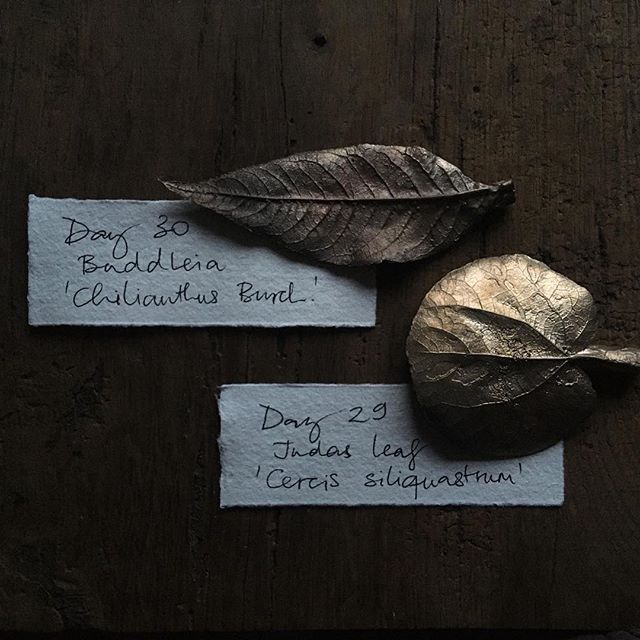 Day 30
Buddleia
'Chilianthus Burch.'
Day 29
Judas leaf
'Cercis siliquastrum'